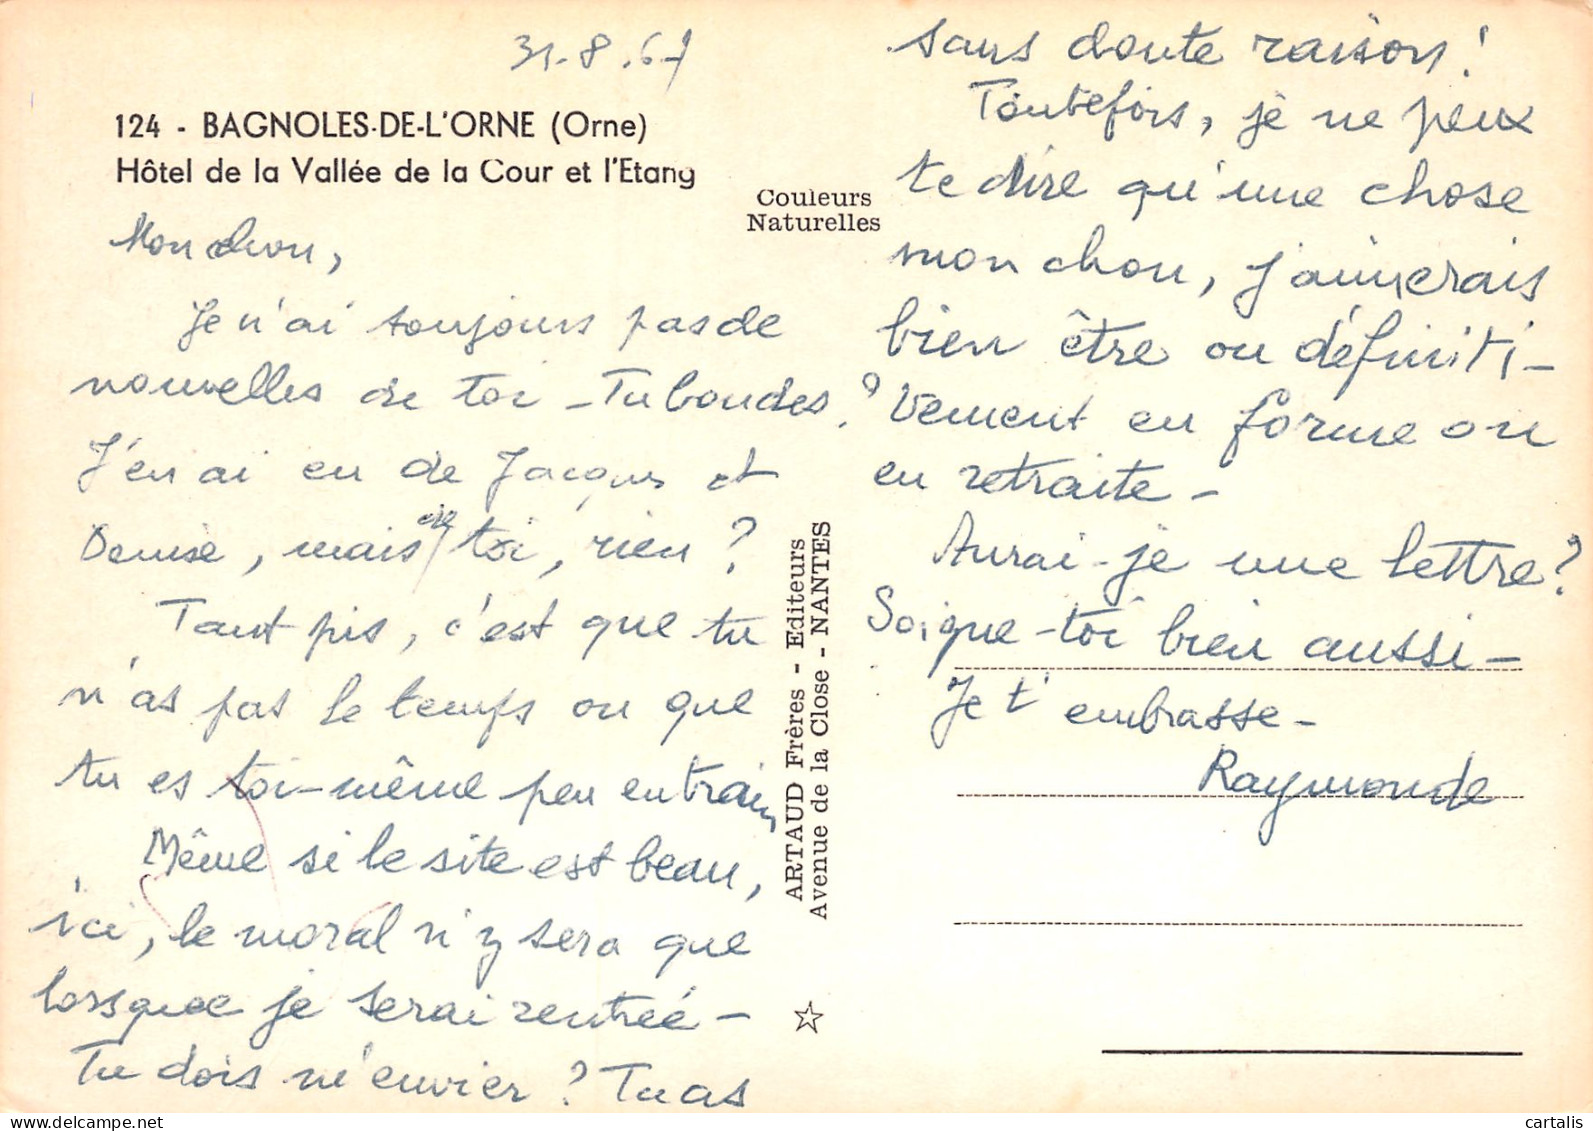 31-8.67
124 - BAGNOLES-DE-L'ORNE (Orne)
Hôtel de la Vallée de la Cour et l'Etang
Couleurs
Naturelles
Mon chou,
Je n'ai toujours pas de
nouvelles de toi - Tu boudes ?
J'en ai eu de Jacques et
Denise, mais de toi, rien ?
Tant pis, c'est que tu
n'as pas le temps ou que
tu es toi-même peu en train
Même si le site est beau,
ici, le moral n'y sera que
lorsque je serai rentrée -
Tu dois m'envier ? Tu as
ARTAUD Frères - Editeurs
Avenue de la Close - NANTES
sans doute raison !
Toutefois, je ne peux
te dire qu'une chose
mon chou, j'aimerais
bien être ou définiti-
vement en forme ou
en retraite -
Aurai-je une lettre ?
Soigne-toi bien aussi -
Je t'embrasse -
Raymonde
cartalis